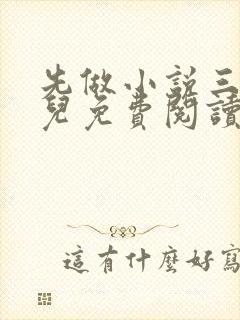 先做小説三
兒免費閱讀
這有什麼好寫